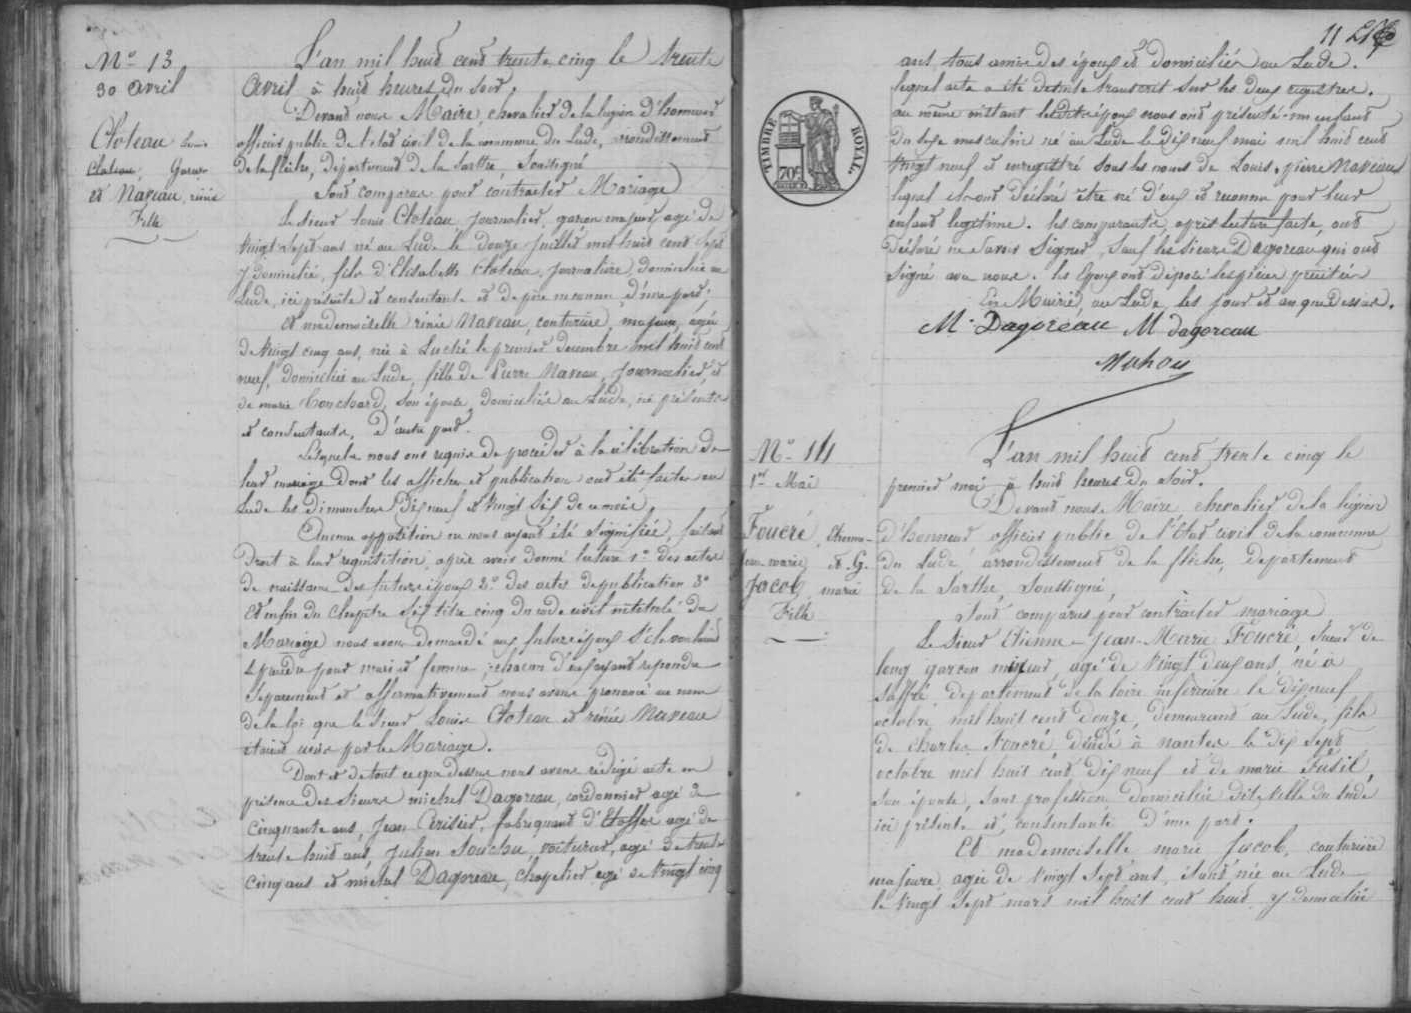 No 13
30 avril
Cloteau Louis
Cloteau, Garçon
et Naveau, renée
Fille
L'an mil huit cent trente cinq le trente
Avril à huit heures du soir,
Devant nous Maire, chevalier de la légion d'honneur
officier public de l'état civil de la commune du Lude, arrondissement
de la flèche, département de la Sarthe, Soussigné
Sont comparus pour contracter Mariage
Le sieur Louis Cloteau journalier, garçon majeur, agé de
vingt sept ans né au Lude le douze juillet mil huit cent sept
y domicilié, fils d'Elisabeth Cloteau, journalière, domiciliée au
Lude, ici présente et consentante et de père inconnu d'une part;
Et mademoiselle renée Naveau, couturière, majeure, agée
de vingt cinq ans, née à Luché le premier decembre mil huit cent
neuf, domiciliée au Lude, fille de Pierre Naveau, journalier, et
de marie Bouchard, son épouse, domiciliés au Lude, ici présents
et consentants, d'autre part.
Lesquels nous ont requis de procéder à la célébration de
leur mariage dont les affiches et publication ont été faites au
Lude les dimanches dix neuf et vingt six de ce mois,
Aucune opposition ne nous ayant été signifiée, faisant
droit à leur requisition, après avoir donné lecture 1o des actes
de naissance des futurs époux 2o des actes de publication 3o
et enfin du chapitre six titre cinq du code civil intitulé du
Mariage nous avons demandé aux futurs époux s'ils veulent
se prendre pour mari et femme, chacun d'eux ayant repondu
séparement et affirmativement nous avons prononcé au nom
de la loi que le sieur Louis Cloteau et renée Naveau
étaient unis par le Mariage.
Dont et de tout ce que dessus nous avons rédigé acte en
présence des Sieurs michel Dagoreau, cordonnier agé de
cinquante ans, Jean Cerisier, fabriquant d'Etoffes agé de
trente huit ans Julien Souchu, voiturier, agé de trente
cinq ans et michel Dagoreau, chapelier agé de vingt cinq
11
ans, tous amis des époux et domiciliés au Lude.
lequel acte a été de suite transcrit sur les deux registres.
au même instant lesdits époux nous ont présenté un enfant
du sexe masculin né au Lude le dix neuf mai mil huit cent
vingt neuf et enregistré sous les noms de Louis, pierre Naveau
lequel ils ont déclaré être né d'eux et reconnu pour leur
enfant legitime. les comparants, après lecture faite, ont
déclaré ne savoir signer, sauf les sieurs Dagoreau qui ont
signé avec nous. les Epoux ont déposé les pièces précitées
En Mairie, au Lude, les jour et an que dessus.
M. Dagoréau M dagoreau
TIMBRE ROYAL
70c
No 14
1er Mai
Foucré, Etienne-
Jean-marie et G.
Jacob, marie
Fille
L'an mil huit cent trente cinq le
premier mai à huit heures du soir.
Devant nous Maire chevalier de la légion
d'honneur officier public de l'Etat civil de la commune
du Lude arrondissement de la flèche, departement
de la Sarthe, Soussigné,
Sont comparus pour contracter mariage
Le Sieur Etienne-Jean-Marie Foucré, Scieur de
long garçon mineur, agé de vingt deux ans, né à
Saffré, departement de la loire inférieure le dix neuf
octobre mil huit cent douze, demeurant au Lude, fils
de Charles Foucré, décédé à nantes le dix sept
octobre mil huit cent dix neuf et de marie Fusil,
son épouse, sans profession domiciliée dite ville du Lude
ici présente et consentante d'une part.
Et mademoiselle marie Jacob, couturière
majeure, agée de vingt sept ans, étant née au Lude
le vingt sept mars mil huit cent huit, y domiciliée